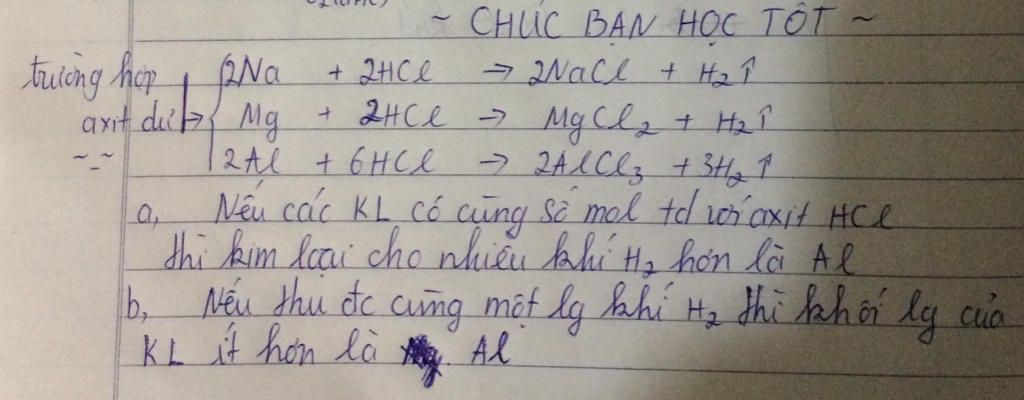 ~ CHÚC BẠN HỌC TỐT ~
trường hợp 2Na + 2HCl → 2NaCl + H2↑
axit dư → Mg + 2HCl → MgCl2 + H2↑
~.~ 2Al + 6HCl → 2AlCl3 + 3H2↑
a, Nếu các KL có cùng số mol td với axit HCl
thì kim loại cho nhiều khí H2 hơn là Al
b, Nếu thu đc cùng một lg khí H2 thì khối lg của
KL ít hơn là Al